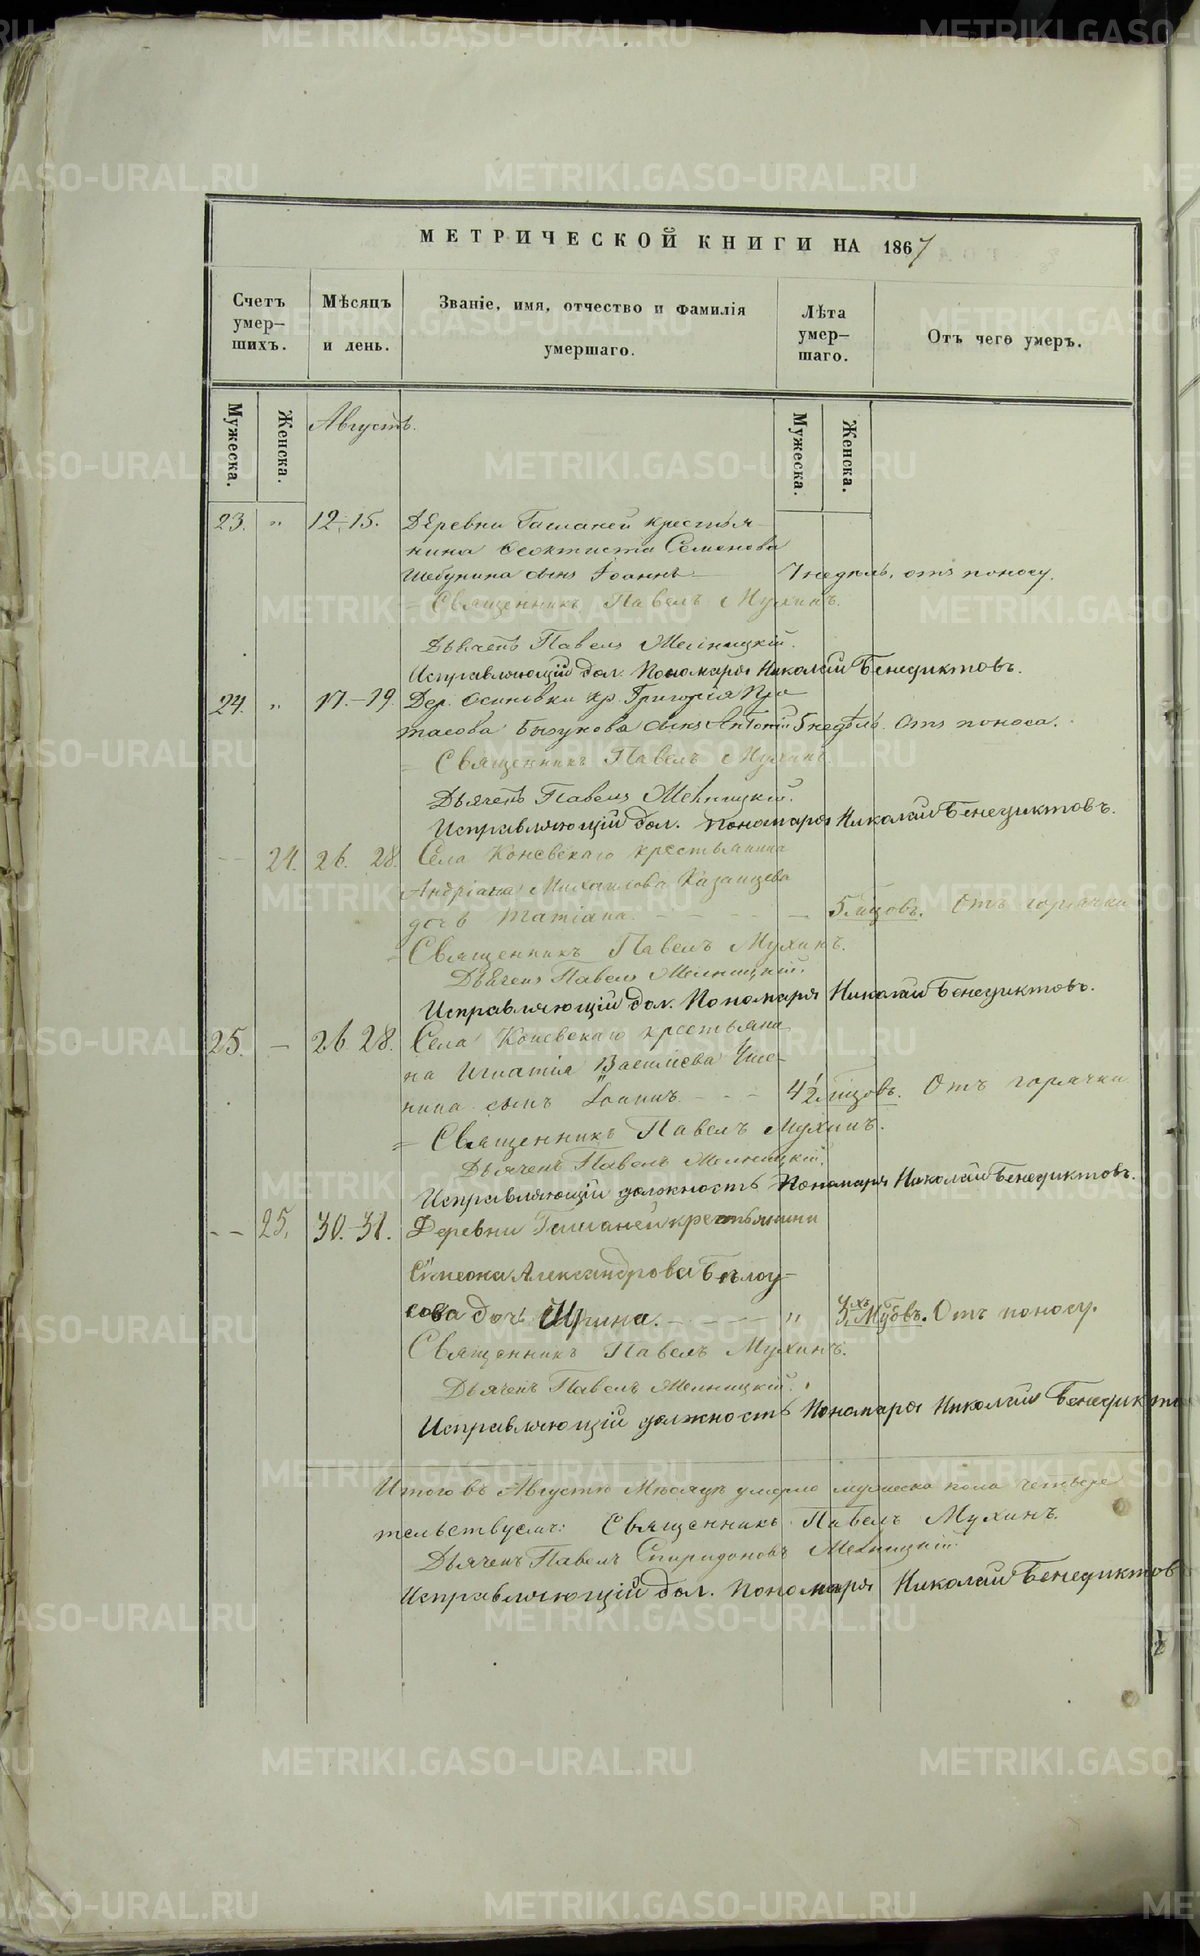 МЕТРИЧЕСКОЙ КНИГИ НА 1867
Счетъ умер– шихъ.
Мѣсяцъ и день.
Званіе, имя, отчество и фамилія умершаго.
Лѣта умер– шаго.
Отъ чего умеръ.
Мужеска.
Женска.
Августъ.
Мужеска.
Женска.
23. " 12–15. Деревни Гашаней крестья–
нина Феоктиста Семенова
Шебунина сынъ Іоаннъ — 7 недѣль. отъ поносу.
– Священникъ Павелъ Мухинъ.
Дьячекъ Павелъ Мелницкій.
Исправляющій дол. Пономаря Николай Бенедиктовъ.
24. " 17.–19. Дер. Осиновки кр. Григорія Про
тасова сынъ Антоній 5 недѣль. Отъ поноса.
– Священникъ Павелъ Мухинъ.
Дьячекъ Павелъ Мелницкій.
Исправляющій дол. Пономаря Николай Бенедиктовъ.
–– 24. 26. 28. Села Коневскаго крестьянина
Андріана Михаилова Казанцева
дочь Татіана. – – – – 5 мцовъ. Отъ горячки
– Священникъ Павелъ Мухинъ.
Дьячекъ Павелъ Мелницкій.
Исправляющій дол. Пономаря Николай Бенедиктовъ.
25. – 26 28. Села Коневскаго крестьяни
на Игнатія Василіева
нина сынъ Іоаннъ – – – 4½ мцовъ. Отъ горячки
= Священникъ Павелъ Мухинъ.
Дьячекъ Павелъ Мелницкій.
Исправляющій должность Пономаря Николай Бенедиктовъ.
–– 25. 30.–31. Деревни Гашаней крестьянина
Симеона Александрова Бѣлоу–
сова дочь Ирина. – – – – " 3хъ Мцовъ. Отъ поносу.
Священникъ Павелъ Мухинъ.
Дьячекъ Павелъ Мелницкій.
Исправляющій должность Пономаря Николай Бенедикто
Итого въ Августѣ Мѣсяцѣ умерло мужеска пола четыре
тельствуемъ: Священникъ Павелъ Мухинъ.
Дьячекъ Павелъ Спиридоновъ Мелницкій.
Исправляющій дол. Пономаря Николай Бенедиктов
METRIKI.GASO-URAL.RU